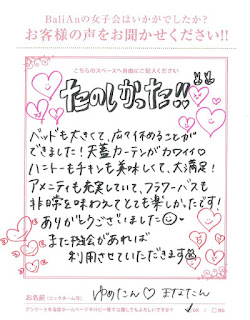 BaliAnの女子会はいかがでしたか?
お客様の声をお聞かせください!!
こちらのスペースへ自由にご記入ください
たのしかった!!
ベッドも大きくて、広々休めることが
できました!天蓋カーテンがカワイイ♡
ハニトーもチキンも美味しくて、大満足!
アメニティも充実していて、フラワーバスも
非日常を味わえてとても楽しかったです!
ありがとうございました
また機会があれば
利用させていただきます
お名前(ニックネーム可)
ゆめたん♡まなたん
アンケートを当店ホームページやロビー等で公開してもよろしいですか?
✓OK / □NG